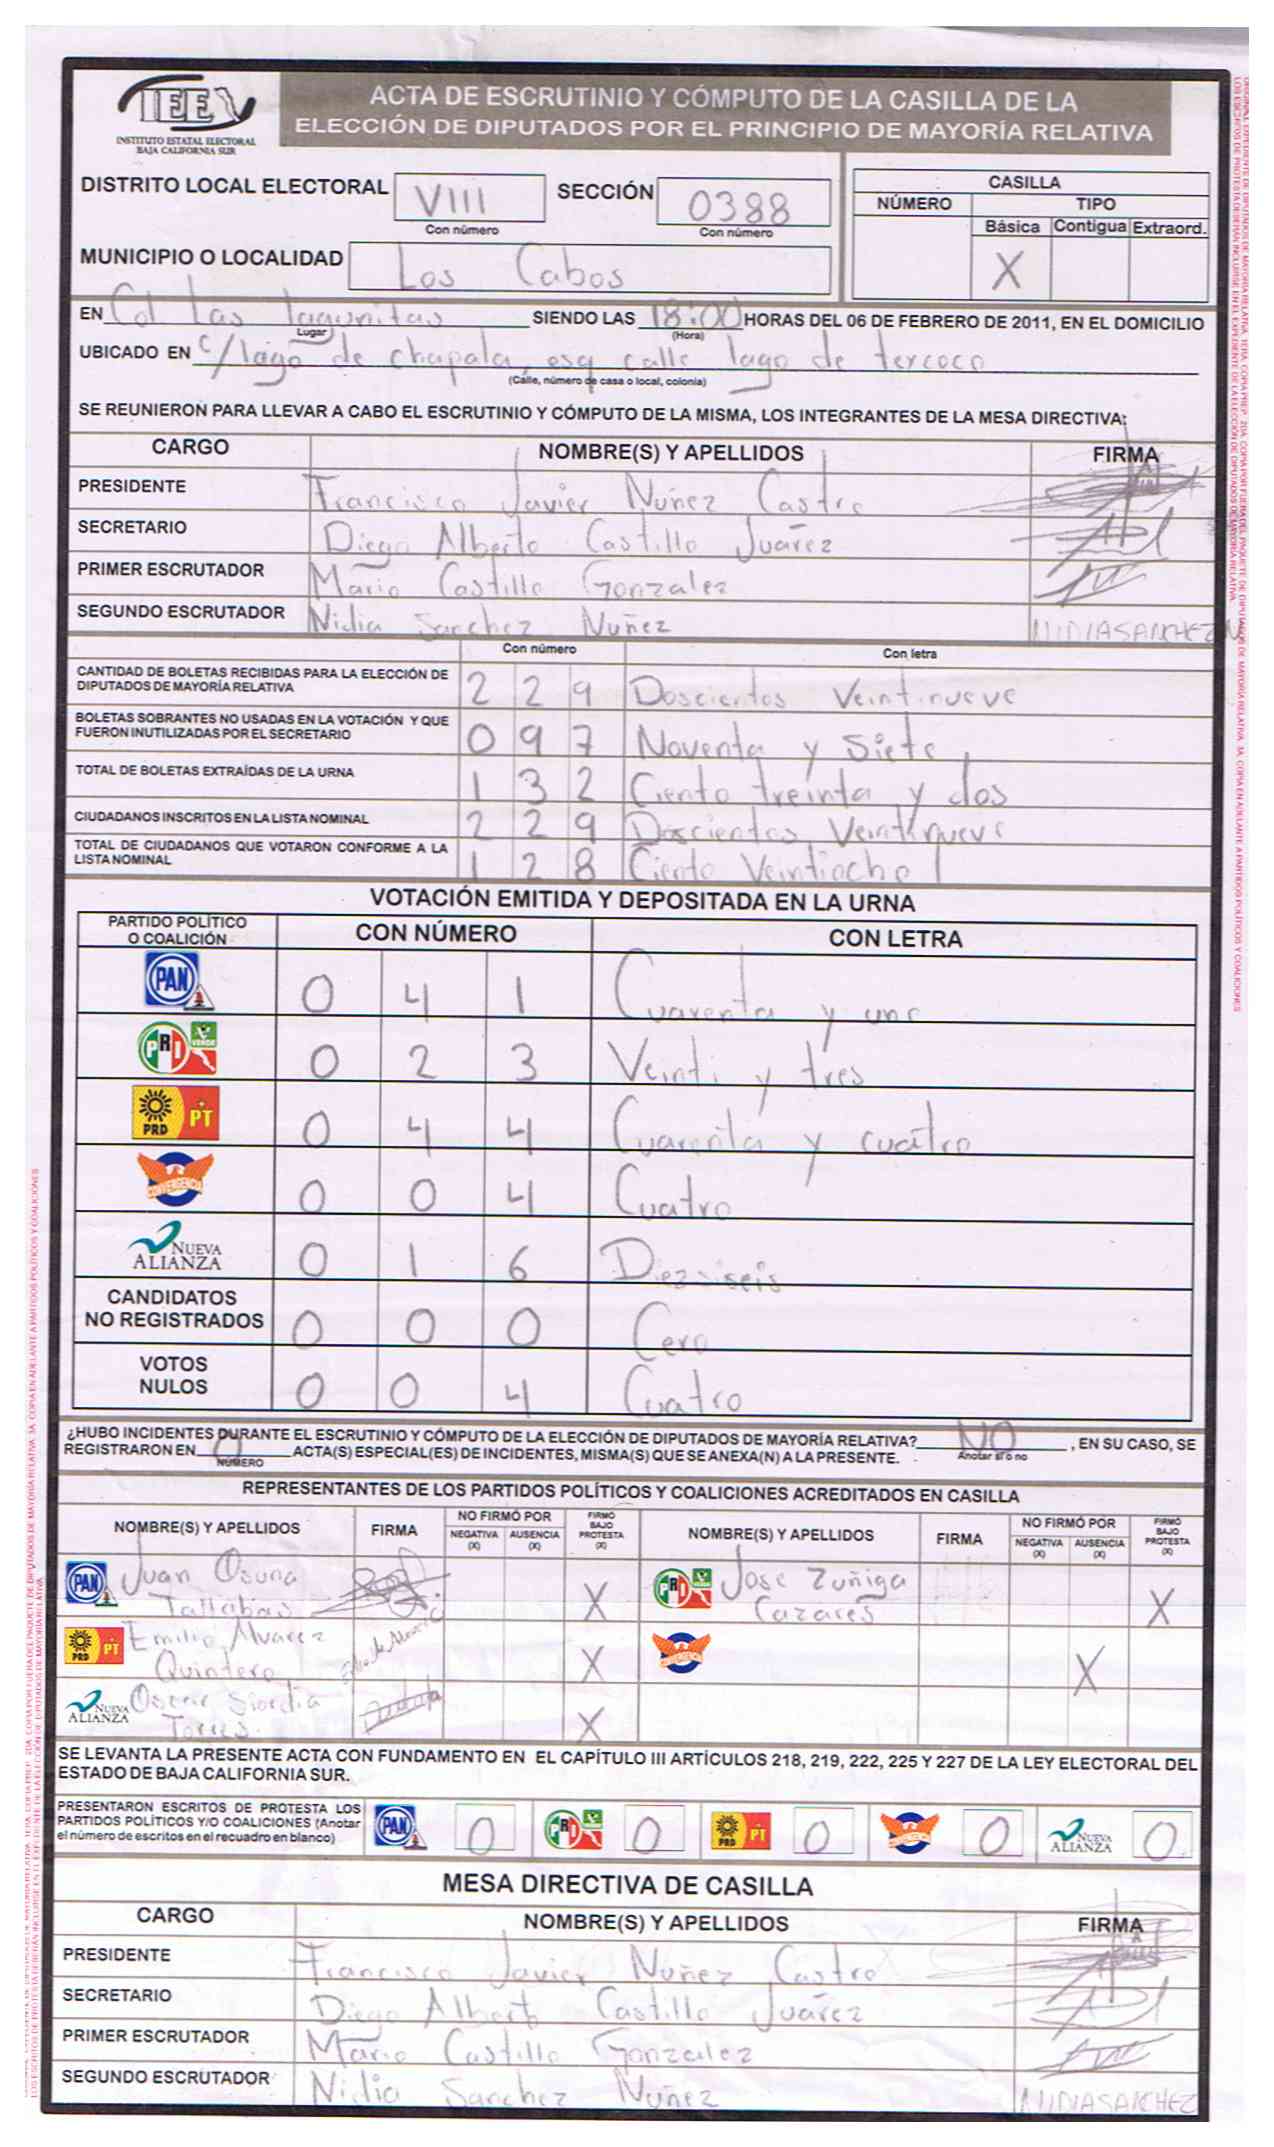 IEE
INSTITUTO ESTATAL ELECTORAL
BAJA CALIFORNIA SUR
ACTA DE ESCRUTINIO Y CÓMPUTO DE LA CASILLA DE LA
ELECCIÓN DE DIPUTADOS POR EL PRINCIPIO DE MAYORÍA RELATIVA
DISTRITO LOCAL ELECTORAL VIII SECCIÓN 0388
Con número Con número
MUNICIPIO O LOCALIDAD Los Cabos
CASILLA
NÚMERO TIPO
Básica Contigua Extraord.
X
EN Col Las lagunitas SIENDO LAS 18:00 HORAS DEL 06 DE FEBRERO DE 2011, EN EL DOMICILIO
Lugar (Hora)
UBICADO EN c/lago de chapala, esq calle lago de texcoco
(Calle, número de casa o local, colonia)
SE REUNIERON PARA LLEVAR A CABO EL ESCRUTINIO Y CÓMPUTO DE LA MISMA, LOS INTEGRANTES DE LA MESA DIRECTIVA:
CARGO NOMBRE(S) Y APELLIDOS FIRMA
PRESIDENTE Francisco Javier Nuñez Castro
SECRETARIO Diego Alberto Castillo Juarez
PRIMER ESCRUTADOR Mario Castillo Gonzalez
SEGUNDO ESCRUTADOR Nidia Sanchez Nuñez NIDIA SANCHEZ N
Con número Con letra
CANTIDAD DE BOLETAS RECIBIDAS PARA LA ELECCIÓN DE
DIPUTADOS DE MAYORÍA RELATIVA 2 2 9 Doscientos Veintinueve
BOLETAS SOBRANTES NO USADAS EN LA VOTACIÓN Y QUE
FUERON INUTILIZADAS POR EL SECRETARIO 0 9 7 Noventa y Siete
TOTAL DE BOLETAS EXTRAÍDAS DE LA URNA 1 3 2 Ciento treinta y dos
CIUDADANOS INSCRITOS EN LA LISTA NOMINAL 2 2 9 Doscientos Veintinueve
TOTAL DE CIUDADANOS QUE VOTARON CONFORME A LA
LISTA NOMINAL 1 2 8 Ciento Veintiocho
VOTACIÓN EMITIDA Y DEPOSITADA EN LA URNA
PARTIDO POLÍTICO
O COALICIÓN CON NÚMERO CON LETRA
PAN 0 4 1 Cuarenta y uno
PRI VERDE 0 2 3 Veinti y tres
PRD PT 0 4 4 Cuarenta y cuatro
CONVERGENCIA 0 0 4 Cuatro
NUEVA ALIANZA 0 1 6 Diezsiseis
CANDIDATOS
NO REGISTRADOS 0 0 0 Cero
VOTOS
NULOS 0 0 4 Cuatro
¿HUBO INCIDENTES DURANTE EL ESCRUTINIO Y CÓMPUTO DE LA ELECCIÓN DE DIPUTADOS DE MAYORÍA RELATIVA? NO, EN SU CASO, SE
Anotar sí o no
REGISTRARON EN 0 ACTA(S) ESPECIAL(ES) DE INCIDENTES, MISMA(S) QUE SE ANEXA(N) A LA PRESENTE.
NÚMERO
REPRESENTANTES DE LOS PARTIDOS POLÍTICOS Y COALICIONES ACREDITADOS EN CASILLA
NOMBRE(S) Y APELLIDOS FIRMA NO FIRMÓ POR NEGATIVA (X) AUSENCIA (X) FIRMÓ BAJO PROTESTA (X) NOMBRE(S) Y APELLIDOS FIRMA NO FIRMÓ POR NEGATIVA (X) AUSENCIA (X) FIRMÓ BAJO PROTESTA (X)
PAN Juan Osuna X PRI VERDE Jose Zuñiga Cazares X
PRD PT Emilio Alvarez Quintero X CONVERGENCIA X
NUEVA ALIANZA Oscar Siordia Torres. X
SE LEVANTA LA PRESENTE ACTA CON FUNDAMENTO EN EL CAPÍTULO III ARTÍCULOS 218, 219, 222, 225 Y 227 DE LA LEY ELECTORAL DEL
ESTADO DE BAJA CALIFORNIA SUR.
PRESENTARON ESCRITOS DE PROTESTA LOS
PARTIDOS POLÍTICOS Y/O COALICIONES (Anotar
el número de escritos en el recuadro en blanco)
PAN 0 PRI VERDE 0 PRD PT 0 CONVERGENCIA 0 NUEVA ALIANZA 0
MESA DIRECTIVA DE CASILLA
CARGO NOMBRE(S) Y APELLIDOS FIRMA
PRESIDENTE Francisco Javier Nuñez Castro
SECRETARIO Diego Alberto Castillo Juarez
PRIMER ESCRUTADOR Mario Castillo Gonzalez
SEGUNDO ESCRUTADOR Nidia Sanchez Nuñez NIDIA SANCHEZ